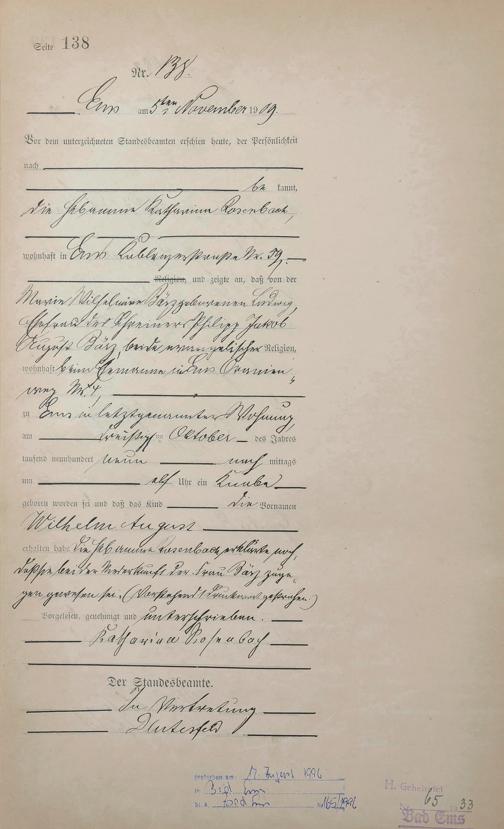 Seite 138
Nr. 138.
Ems am 5ten November 1909.
Vor dem unterzeichneten Standesbeamten erschien heute, der Persönlichkeit
nach
be kannt,
die Hebamme Katharina Rosenbach,
wohnhaft in Ems Koblenzerstraße Nr. 59.
Religion, und zeigte an, daß von der
Marie Wilhelmine Bärz geborenen Ludwig,
Ehefrau des Schreiners Philipp Jakob
August Bärz, beide evangelischer Religion,
wohnhaft beim Ehemanne in Ems Oranien-
weg Nr. 4,
zu Ems in letztgenannter Wohnung,
am dreißigsten Oktober des Jahres
tausend neunhundert neun nach mittags
um elf Uhr ein Knabe
geboren worden sei und daß das Kind die Vornamen
Wilhelm August
erhalten habe. Die Hebamme Rosenbach erklärte noch,
daß sie bei der Niederkunft der Frau Bärz zuge-
gen gewesen sei. (Vorstehend 1 Druckwort gestrichen.)
Vorgelesen, genehmigt und unterschrieben.
Katharina Rosenbach
Der Standesbeamte.
In Vertretung
gestorben am: 17. August 1996
in Bad Ems
St. A. Bad Ems Nr. 165/1996
H. Geheiratet
Nr. 65 1933
Bad Ems